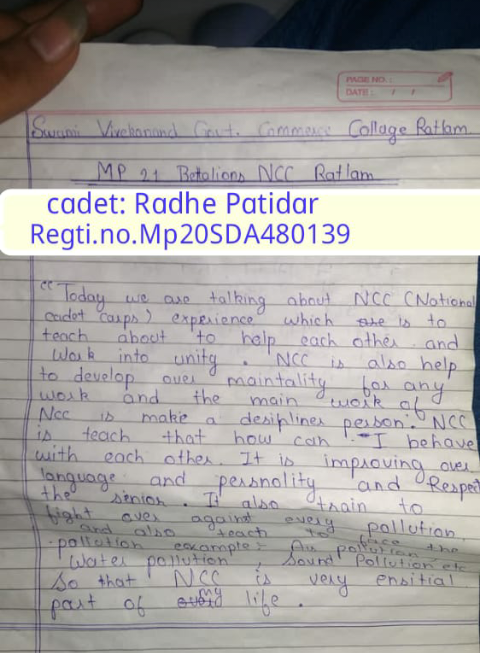 PAGE NO. :
DATE : / /
Swami Vivekanand Govt. Commerce Collage Ratlam
MP 21 Battalions NCC Ratlam
cadet: Radhe Patidar
Regti.no.Mp20SDA480139
"Today we are talking about NCC (National
cadet carps) experience which are is to
teach about to help each other and
Work into unity . NCC is also help
to develop over maintality for any
work and the main work of
NCC is make a desipliner person. NCC
is teach that how can I behave
with each other. It is improving over
language and personlity and Respect
the senior . It also train to
fight over against every pollution.
and also teach to face the
pollution example:- Air pollution
Water pollution , Sound Pollution etc
So that NCC is very ensitial
part of my life .